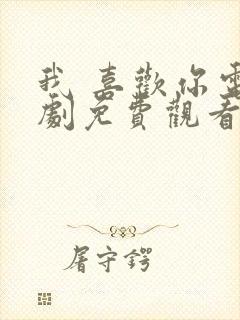 我 喜歡你電
劇免費觀看
屠守鍔